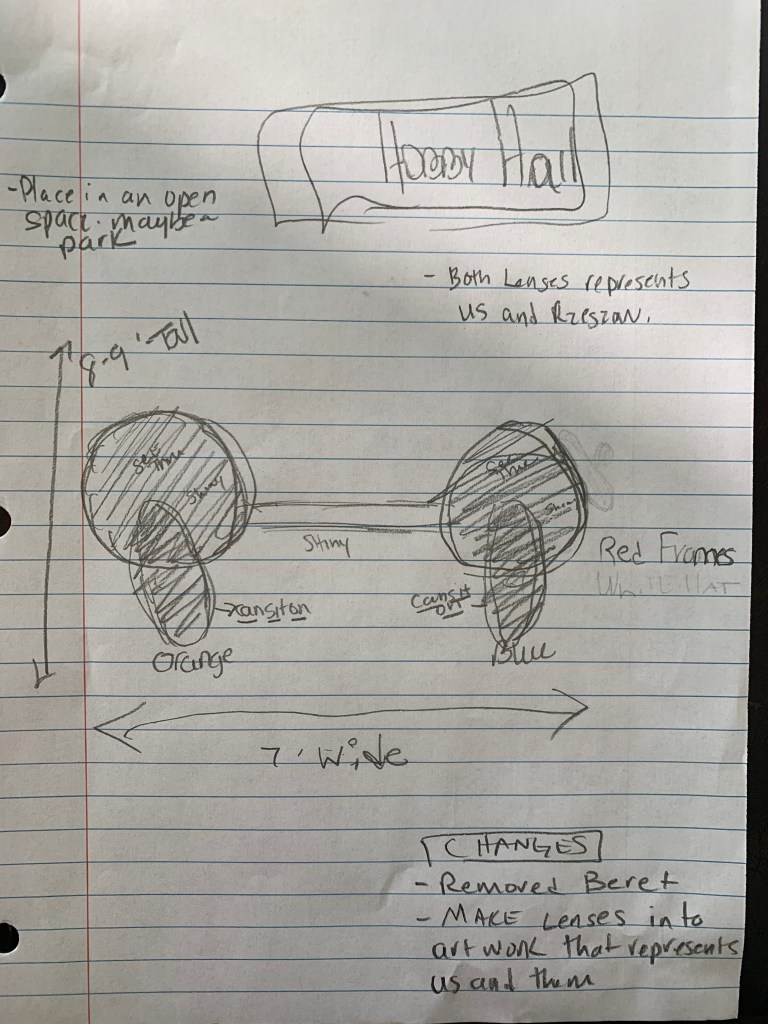 Hobby Hall
-Place in an open
space. maybe a
park
- Both Lenses represents
us and Rzeszan.
8-9' Tall
See
thru
Shiny
See
thru
Shiny
Red Frames
White Hat
Transiton
Orange
Blue
7' Wide
CHANGES
- Removed Beret
- MAKE Lenses in to
art work that represents
us and them